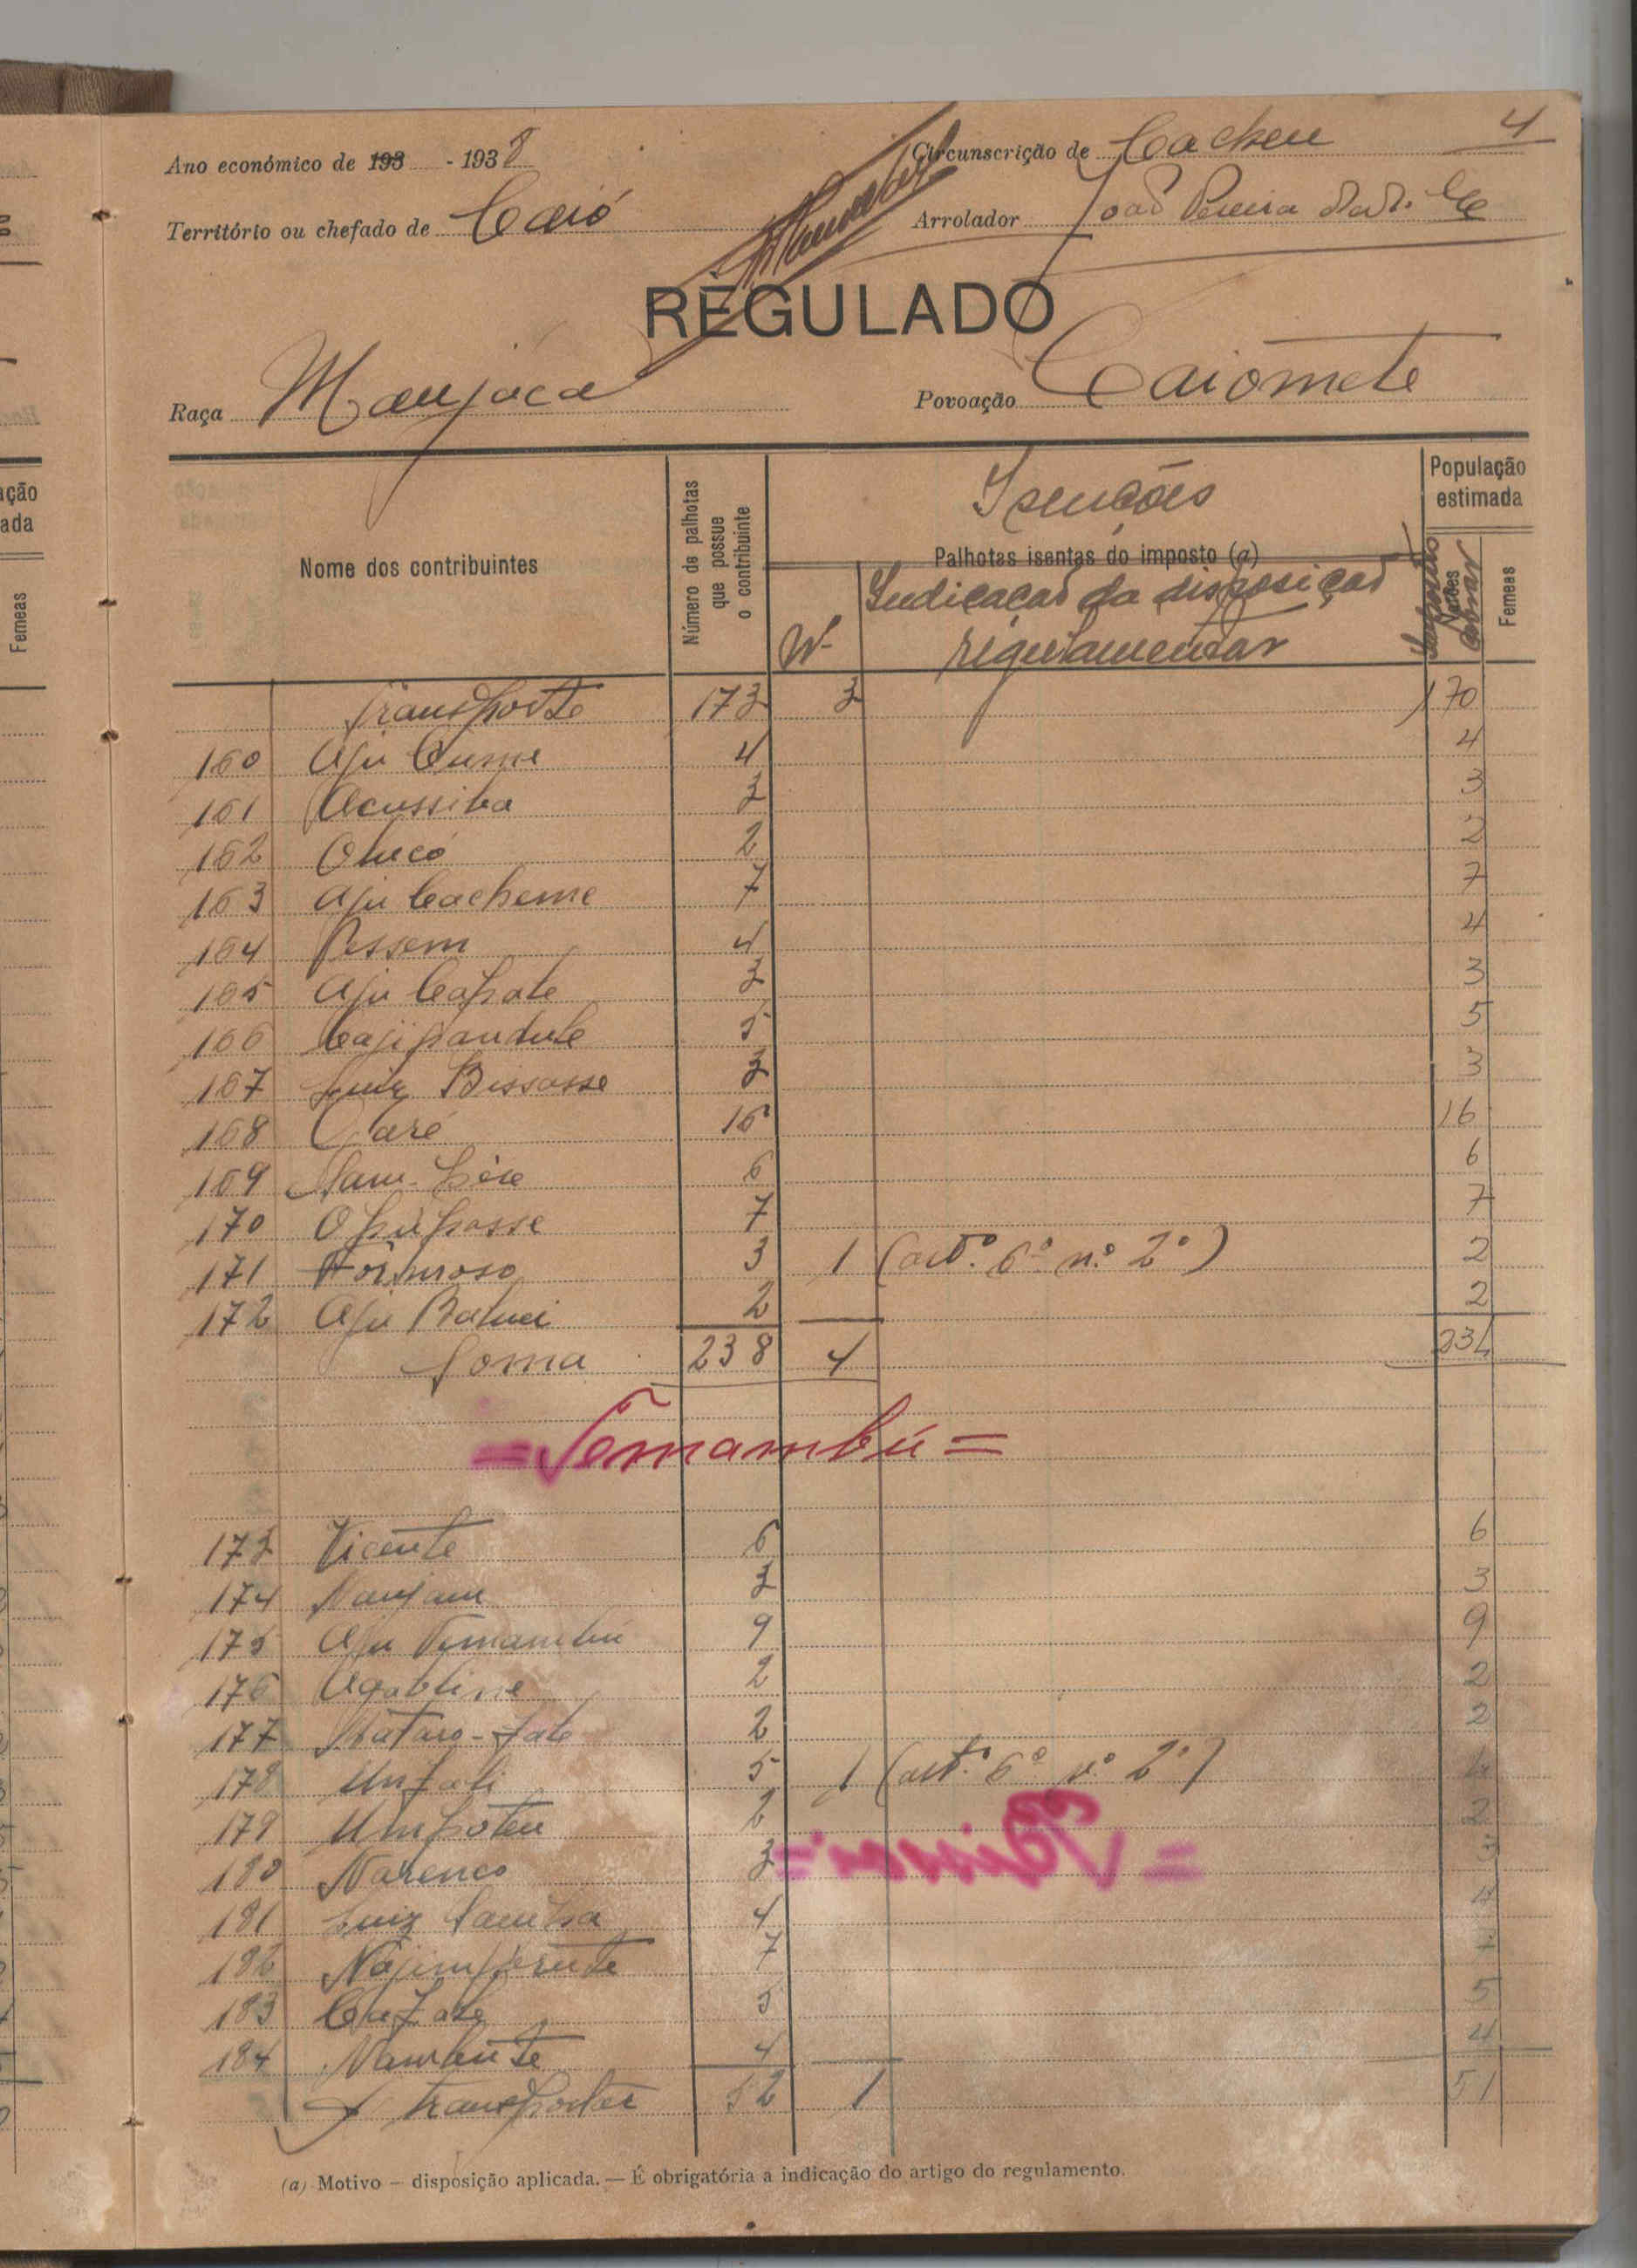 4
Ano económico de 193 - 1938 Circunscrição de Cacheu
Território ou chefado de Caió Arrolador João Pereira
REGULADO
Raça Manjaca Povoação Caiomete
Nome dos contribuintes
Número de palhotas que possue o contribuinte
Isenções
Palhotas isentas do imposto (a)
Nº
Indicação da disposição regulamentar
População estimada
Machos
Femeas
Femeas
Transporte 173 3 170
160 Aju Cume 4 4
161 Acussiba 3 3
162 2 2
163 Aju Cacheme 7 7
164 Pessem 4 4
165 Aju Capate 3 3
166 Cajipandule 5 5
167 Luiz Bissasse 3 3
168 Caré 16 16
169 6 6
170 Opupasse 7 7
171 Formoso 3 1 (artº. 6º nº 2º) 2
172 Aju 2 2
Soma 238 4 234
= Temambú =
173 Vicente 6 6
174 Nanjam 3 3
175 Aju Temambú 9 9
176 2 2
177 2 2
178 5 1 (artº. 6º nº 2º) 4
179 2 2
180 Narenco 3 3
181 Luiz 4 4
182 7 7
183 5 5
184 4 4
A transportar 52 1 51
(a) Motivo — disposição aplicada. — É obrigatória a indicação do artigo do regulamento.